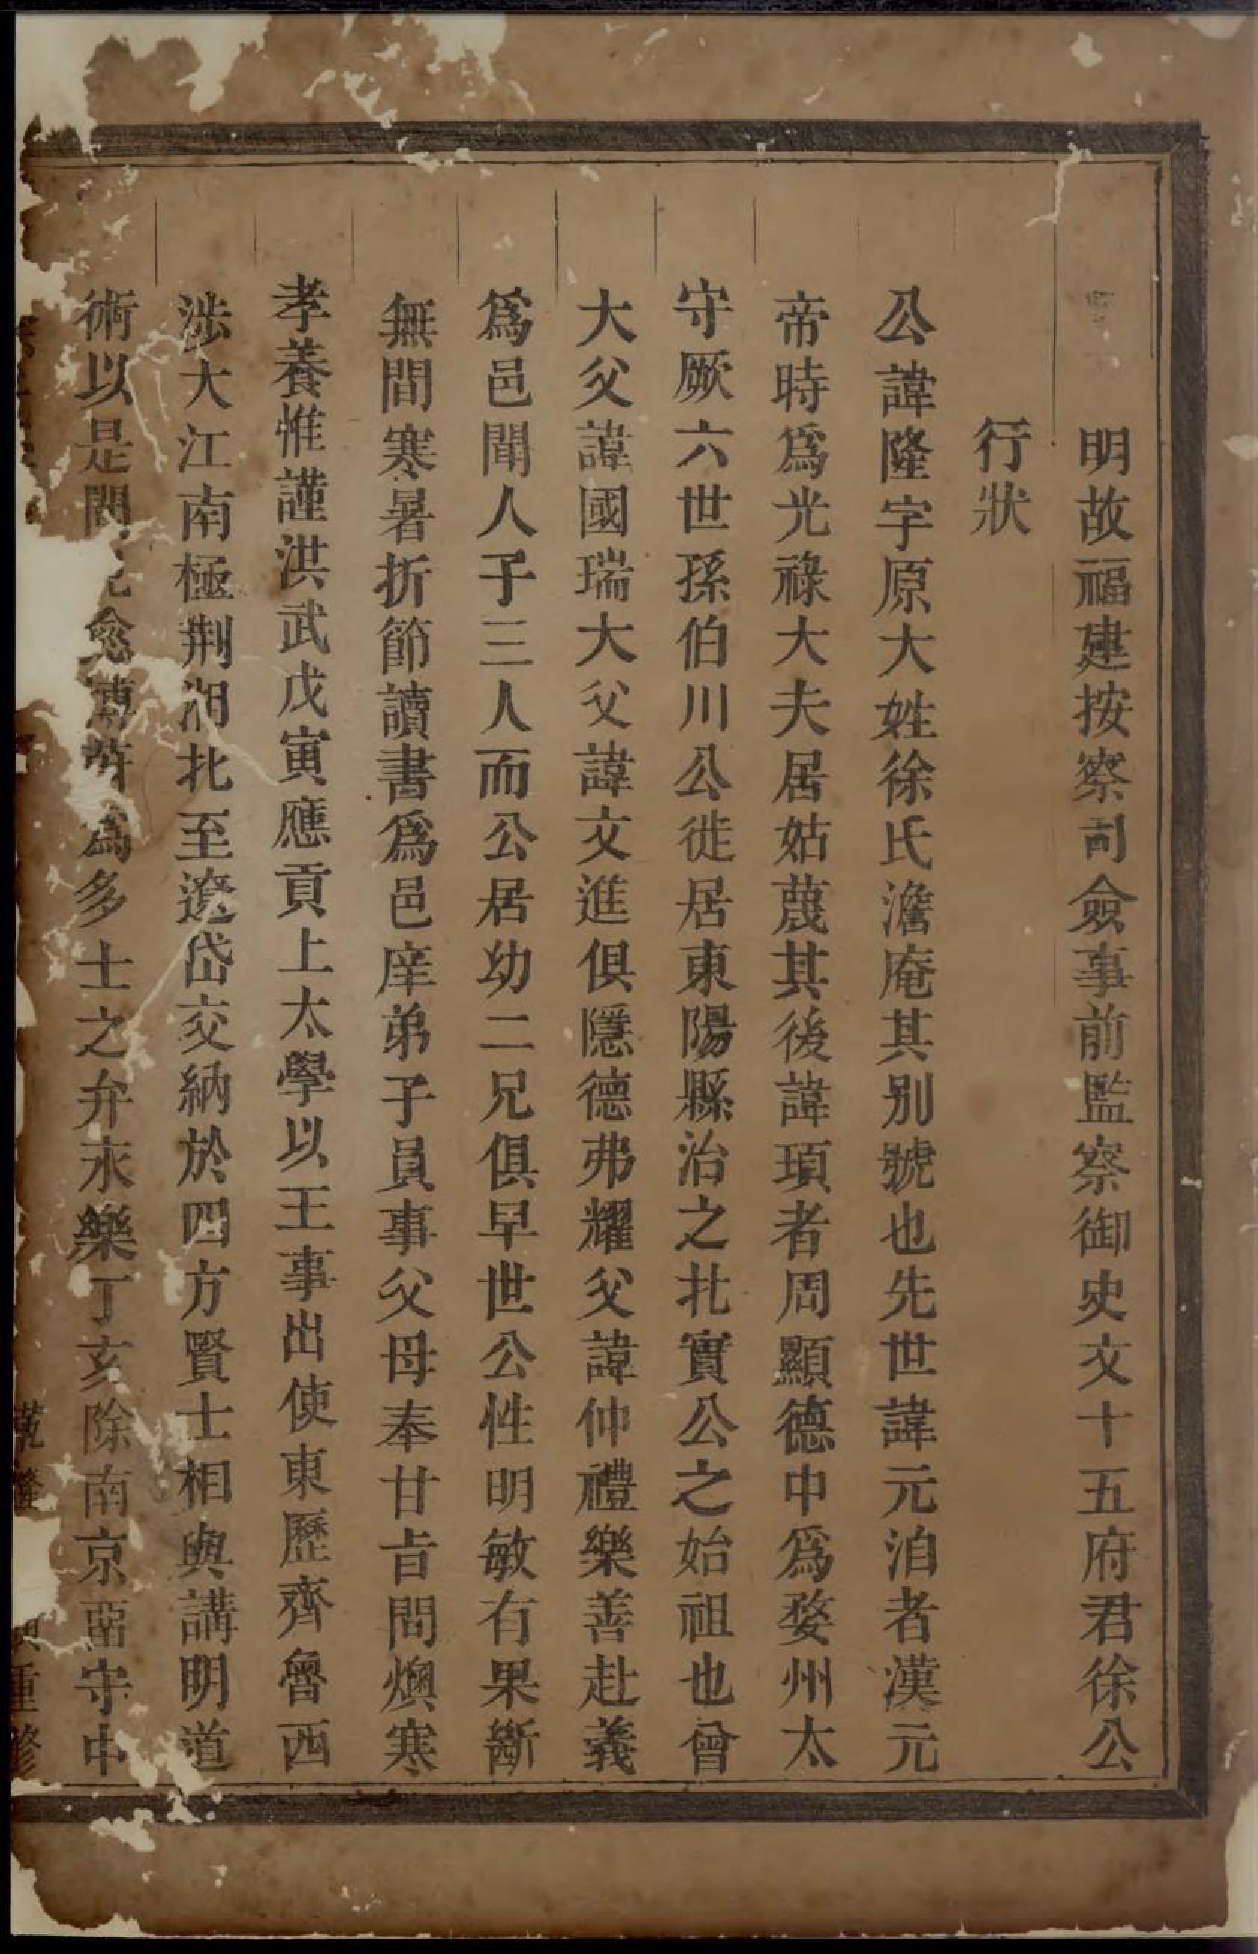 明故福建按察司僉事前監察御史文十五府君徐公
行狀
公諱隆字原大姓徐氏澹庵其別號也先世諱元洎者漢元
帝時爲光祿大夫居姑蔑其後諱頊者周顯德中爲婺州太
守厥六世孫伯川公徙居東陽縣治之北實公之始祖也曾
大父諱國瑞大父諱文進俱隱德弗耀父諱仲禮樂善赴義
爲邑聞人子三人而公居幼二兄俱早世公性明敏有果斷
無間寒暑折節讀書爲邑庠弟子員事父母奉甘旨問燠寒
孝養惟謹洪武戊寅應貢上太學以王事出使東歷齊魯西
涉大江南極荆湘北至遼岱交納於四方賢士相與講明道
術以是聞愈爲多士之弁永樂丁亥除南京畱守中
重修